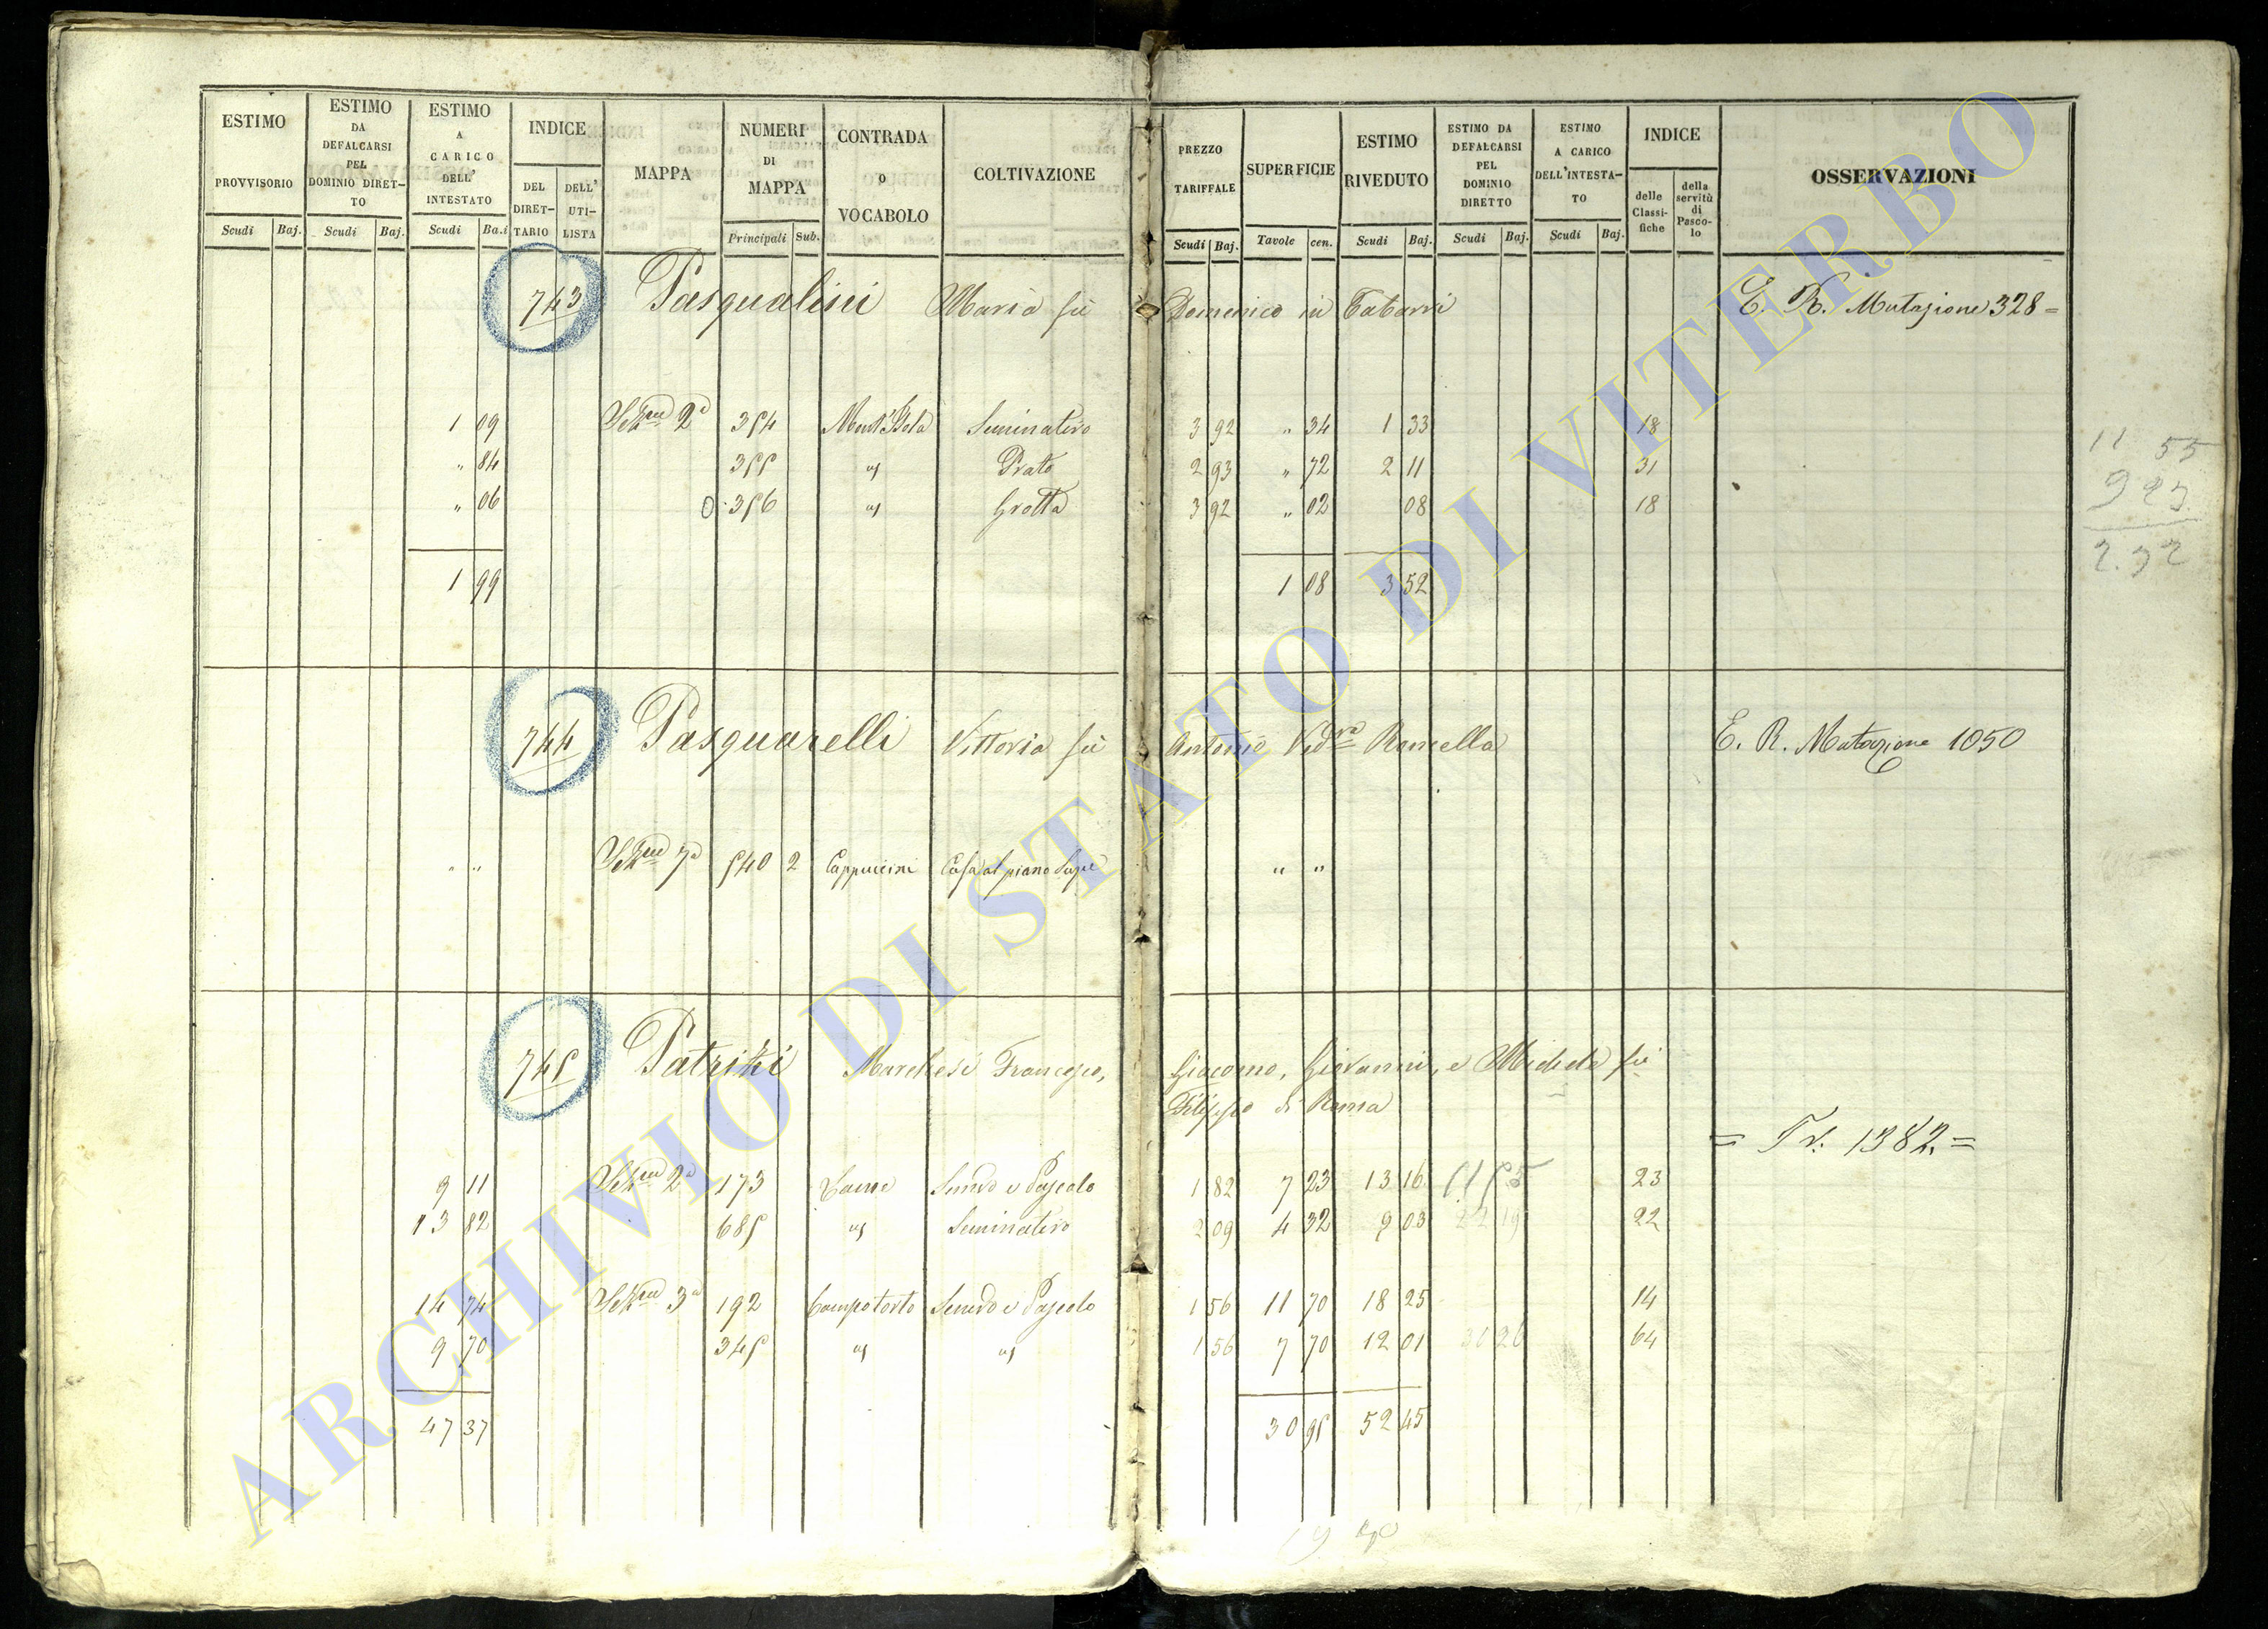 ESTIMO PROVVISORIO
Scudi Baj.
ESTIMO DA DEFALCARSI PEL DOMINIO DIRET-TO
Scudi Baj.
ESTIMO A CARICO DELL' INTESTATO
Scudi Ba.i
INDICE
DEL DIRET-TARIO
DELL' UTI-LISTA
MAPPA
NUMERI DI MAPPA
Principali Sub.
CONTRADA O VOCABOLO
COLTIVAZIONE
PREZZO TARIFFALE
Scudi Baj.
SUPERFICIE
Tavole cen.
ESTIMO RIVEDUTO
Scudi Baj.
ESTIMO DA DEFALCARSI PEL DOMINIO DIRETTO
Scudi Baj.
ESTIMO A CARICO DELL'INTESTA-TO
Scudi Baj.
INDICE
delle Classi-fiche
della servitù di Pasco-lo
OSSERVAZIONI
743 Pasqualini Maria fù Domenico in Tabarri E. R. Mutazione 328 =
1 09 Sezne 2a 354 Seminativo 3 92 " 34 1 33 18
" 84 355 " Prato 2 93 " 72 2 11 31
" 06 0 356 " Grotta 3 92 " 02 08 18
1 99 1 08 3 52
11 55
9 23
2.32
744 Pasquarelli Vittoria fù Antonio Vedva Ramella E. R. Mutazione 1050
" " Sezne 7a 540 2 Cappuccini Casa al piano Supe " "
745 Patrizi Marchesi Francesco, Giacomo, Giovanni, e Michele fù
Filippo di Roma
= Tr. 1382 =
9 11 Sezne 2a 173 Semvo e Pascolo 1 82 7 23 13 16 23
13 82 685 " Seminativo 2 09 4 32 9 03 22 19 22
14 74 Sezne 3a 192 Campotorto Semvo e Pascolo 1 56 11 70 18 25 14
9 70 345 " " 1 56 7 70 12 01 30 26 64
47 37 30 95 52 45
ARCHIVIO DI STATO DI VITERBO